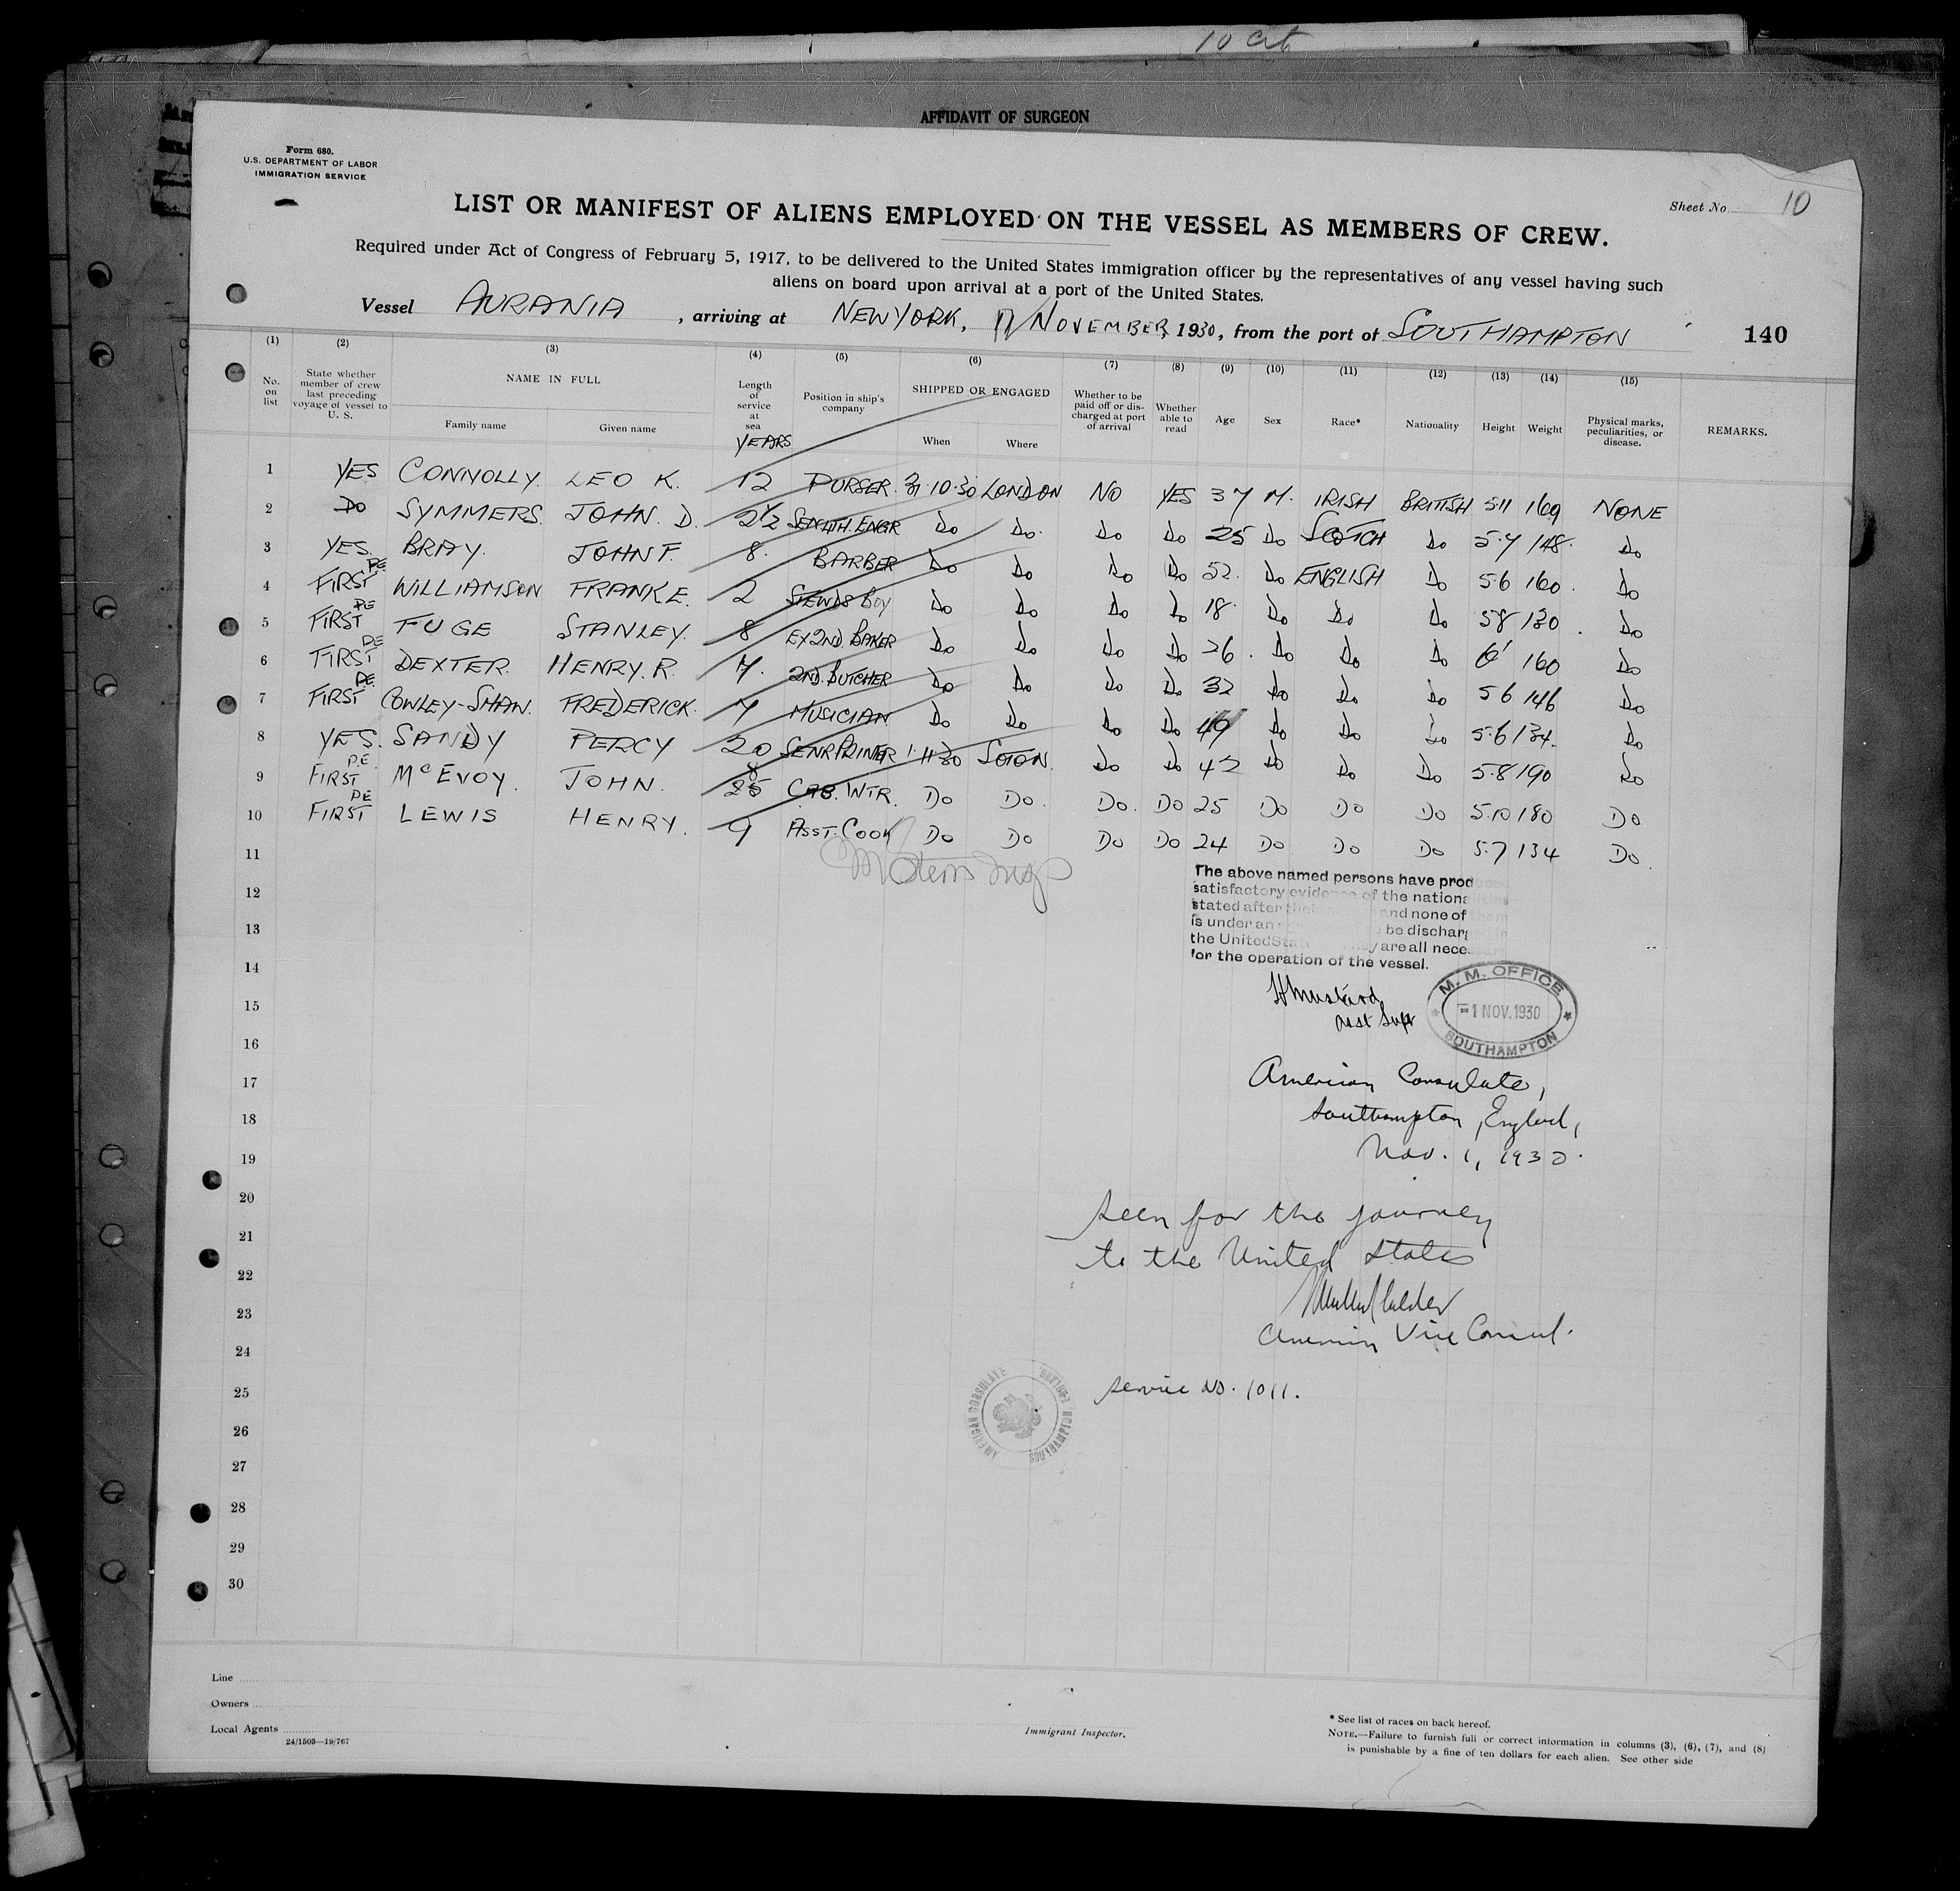 10
AFFIDAVIT OF SURGEON
Form 680.
U.S. DEPARTMENT OF LABOR
IMMIGRATION SERVICE
Sheet No. 10
LIST OR MANIFEST OF ALIENS EMPLOYED ON THE VESSEL AS MEMBERS OF CREW.
Required under Act of Congress of February 5, 1917, to be delivered to the United States immigration officer by the representatives of any vessel having such
aliens on board upon arrival at a port of the United States.
Vessel AURANIA, arriving at NEW YORK, NOVEMBER, 1930, from the port of SOUTHAMPTON 140
(1) (2) (3) (4) (5) (6) (7) (8) (9) (10) (11) (12) (13) (14) (15)
No. on list State whether member of crew last preceding voyage of vessel to U. S. NAME IN FULL Family name Given name Length of service at sea YEARS Position in ship's company SHIPPED OR ENGAGED When Where Whether to be paid off or discharged at port of arrival Whether able to read Age Sex Race* Nationality Height Weight Physical marks, peculiarities, or disease. REMARKS.
1 YES CONNOLLY. LEO K. 12 PURSER. 31.10.30 LONDON NO YES 37 M. IRISH BRITISH 5.11 169 NONE
2 DO SYMMERS. JOHN. D. 2½ SEN 4TH. ENGR Do Do. Do Do 25 Do SCOTCH Do 5.7 148. Do
3 YES. BRAY. JOHN F. 8. BARBER Do Do Do Do 52. Do ENGLISH Do 5.6 160. Do
4 FIRST PE WILLIAMSON FRANK E. 2 STEWDS BOY Do Do Do Do 18. Do Do Do 5.8 130. Do
5 FIRST PE FUGE STANLEY. 8 EX 2ND. BAKER Do Do Do Do 26. Do Do Do 6' 160 Do
6 FIRST PE DEXTER. HENRY. R. 7. 2ND. BUTCHER Do Do Do Do 32 Do Do Do 5.6 146 Do
7 FIRST PE COWLEY-SHAW. FREDERICK. 7 MUSICIAN Do Do Do Do 49 Do Do Do 5.6 134. Do
8 YES. SANDY PERCY 20 1.11.30 SOTON. Do Do 42 Do Do Do 5.8 190 Do
9 FIRST P.E. McEVOY. JOHN. CAB. WTR. Do Do. Do. Do 25 Do Do Do 5.10 180 Do
10 FIRST PE LEWIS HENRY. 9 ASST. COOK Do Do Do Do 24 Do Do Do 5.7 134 Do.
11
12
13
14
15
16
17
18
19
20
21
22
23
24
25
26
27
28
29
30
The above named persons have produced
satisfactory evidence of the nationalities
stated after their and none of them
is under an be discharged in
the United Stat they are all nece
for the operation of the vessel.
H Mustard
Asst Supt
M. M. OFFICE
-1 NOV. 1930
SOUTHAMPTON
American Consulate,
Southampton, England,
Nov. 1, 1930.
Seen for the journey
to the United States
American Vice Consul.
Service No. 1011.
AMERICAN CONSULATE
SOUTHAMPTON, ENGLAND
Line
Owners
Local Agents
24/1503—19/767
Immigrant Inspector.
* See list of races on back hereof.
NOTE.—Failure to furnish full or correct information in columns (3), (6), (7), and (8)
is punishable by a fine of ten dollars for each alien. See other side